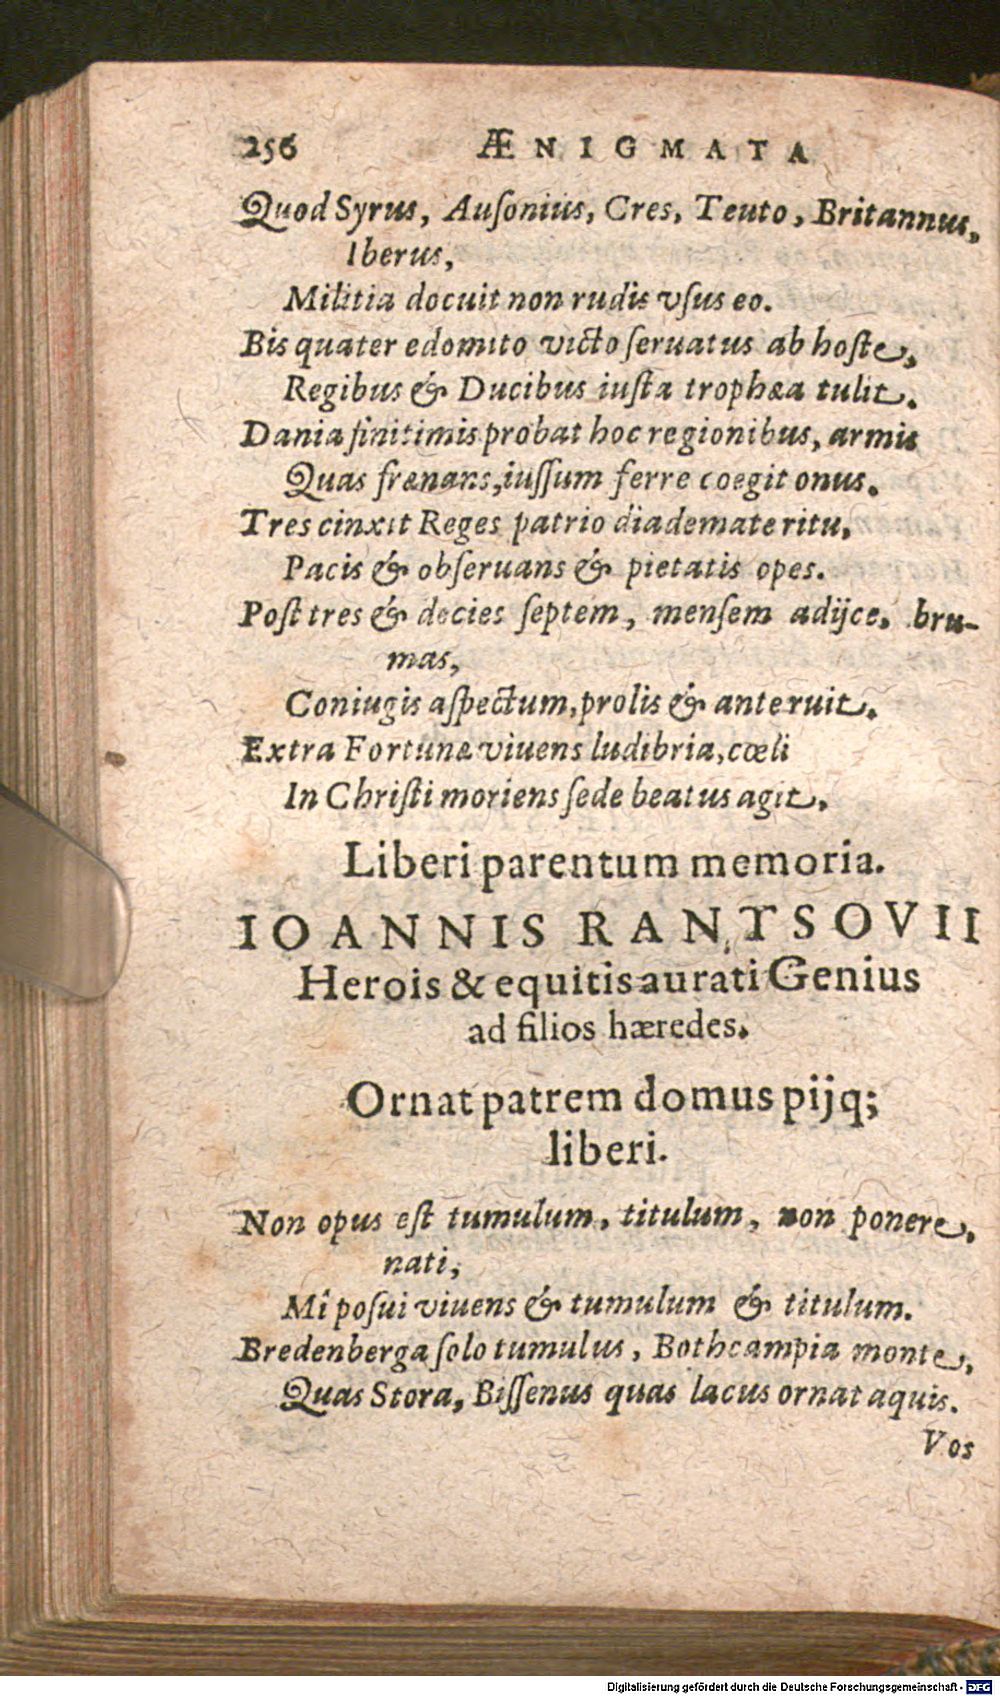 256 ÆNIGMATA
Quod Syrus, Auſonius, Cres, Teuto, Britannus,
Iberus,
Militia docuit non rudis vſus eo.
Bis quater edomito victo ſeruatus ab hoſte,
Regibus & Ducibus iuſta trophæa tulit.
Dania finitimis probat hoc regionibus, armis
Quas frænans, iuſſum ferre coegit onus.
Tres cinxit Reges patrio diademate ritu,
Pacis & obſeruans & pietatis opes.
Poſt tres & decies ſeptem, menſem adijce, bru-
mas,
Coniugis aſpectum, prolis & ante ruit.
Extra Fortunæ viuens ludibria, cœli
In Chriſti moriens ſede beatus agit.
Liberi parentum memoria.
IOANNIS RANTSOVII
Herois & equitis aurati Genius
ad filios hæredes.
Ornat patrem domus pijq;
liberi.
Non opus eſt tumulum, titulum, non ponere,
nati,
Mî poſui viuens & tumulum & titulum.
Bredenberga ſolo tumulus, Bothcampia monte,
Quas Stora, Biſſenus quas lacus ornat aquis.
Vos
Digitalisierung gefördert durch die Deutsche Forschungsgemeinschaft - DFG